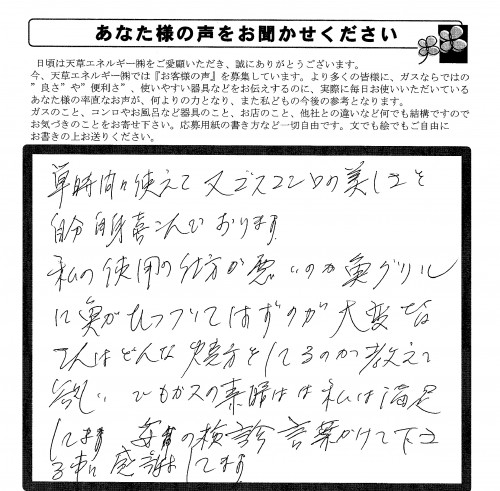 あなた様の声をお聞かせください
日頃は天草エネルギー㈱をご愛顧いただき、誠にありがとうございます。
今、天草エネルギー㈱では『お客様の声』を募集しています。より多くの皆様に、ガスならではの
”良さ”や”便利さ”、使いやすい器具などをお伝えするのに、実際に毎日お使いいただいている
あなた様の率直なお声が、何よりの力となり、また私どもの今後の参考となります。
ガスのこと、コンロやお風呂など器具のこと、お店のこと、他社との違いなど何でも結構ですので
お気づきのことをお寄せ下さい。応募用紙の書き方など一切自由です。文でも絵でもご自由に
お書きの上お送りください。
単時間に使えて 又ガスコンロの美しさと
自分自身喜こんで おります
私の使用の仕方が悪いのか魚グリル
に魚がひっついてはずのが 大変 皆
さんはどんな 焼方をしてるのか教えて
欲しい でもガスの素晴は 私は満足
してます 毎月の検診 言葉かけて下さ
る事に感謝してます